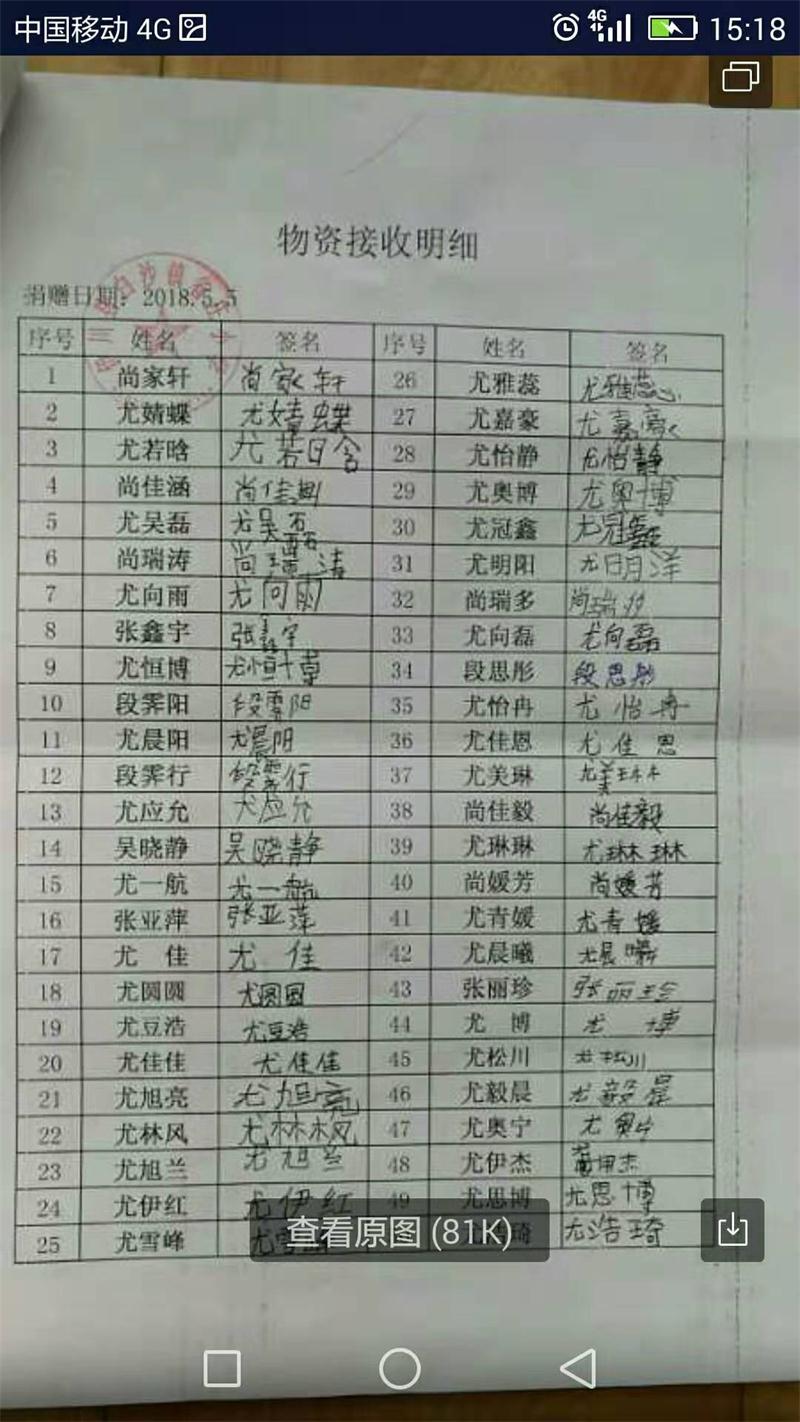 中国移动 4G 4G 15:18
物资接收明细
捐赠日期：2018.5.5
序号 姓名 签名 序号 姓名 签名
1 尚家轩 尚家轩 26 尤雅蕊 尤雅蕊
2 尤婧蝶 尤婧蝶 27 尤嘉豪 尤嘉豪
3 尤若晗 尤若晗 28 尤怡静 尤怡静
4 尚佳涵 尚佳涵 29 尤奥博 尤奥博
5 尤吴磊 尤吴磊 30 尤冠鑫 尤冠鑫
6 尚瑞涛 尚瑞涛 31 尤明阳 尤明洋
7 尤向雨 尤向雨 32 尚瑞多 尚瑞
8 张鑫宇 张鑫宇 33 尤向磊 尤向磊
9 尤恒博 尤恒博 34 段思彤 段思彤
10 段霁阳 段霁阳 35 尤怡冉 尤怡冉
11 尤晨阳 尤晨阳 36 尤佳恩 尤佳恩
12 段霁行 段霁行 37 尤美琳 尤美琳
13 尤应允 尤应允 38 尚佳毅 尚佳毅
14 吴晓静 吴晓静 39 尤琳琳 尤琳琳
15 尤一航 尤一航 40 尚媛芳 尚媛芳
16 张亚萍 张亚萍 41 尤青媛 尤青媛
17 尤 佳 尤 佳 42 尤晨曦 尤晨曦
18 尤圆圆 尤圆圆 43 张丽珍 张丽珍
19 尤豆浩 尤豆浩 44 尤 博 尤 博
20 尤佳佳 尤佳佳 45 尤松川 尤松川
21 尤旭亮 尤旭亮 46 尤毅晨 尤毅晨
22 尤林风 尤林枫 47 尤奥宁 尤奥宁
23 尤旭兰 尤旭兰 48 尤伊杰
24 尤伊红 尤伊红 49 尤思博 尤思博
25 尤雪峰 尤雪 琦 尤浩琦
查看原图 (81K)